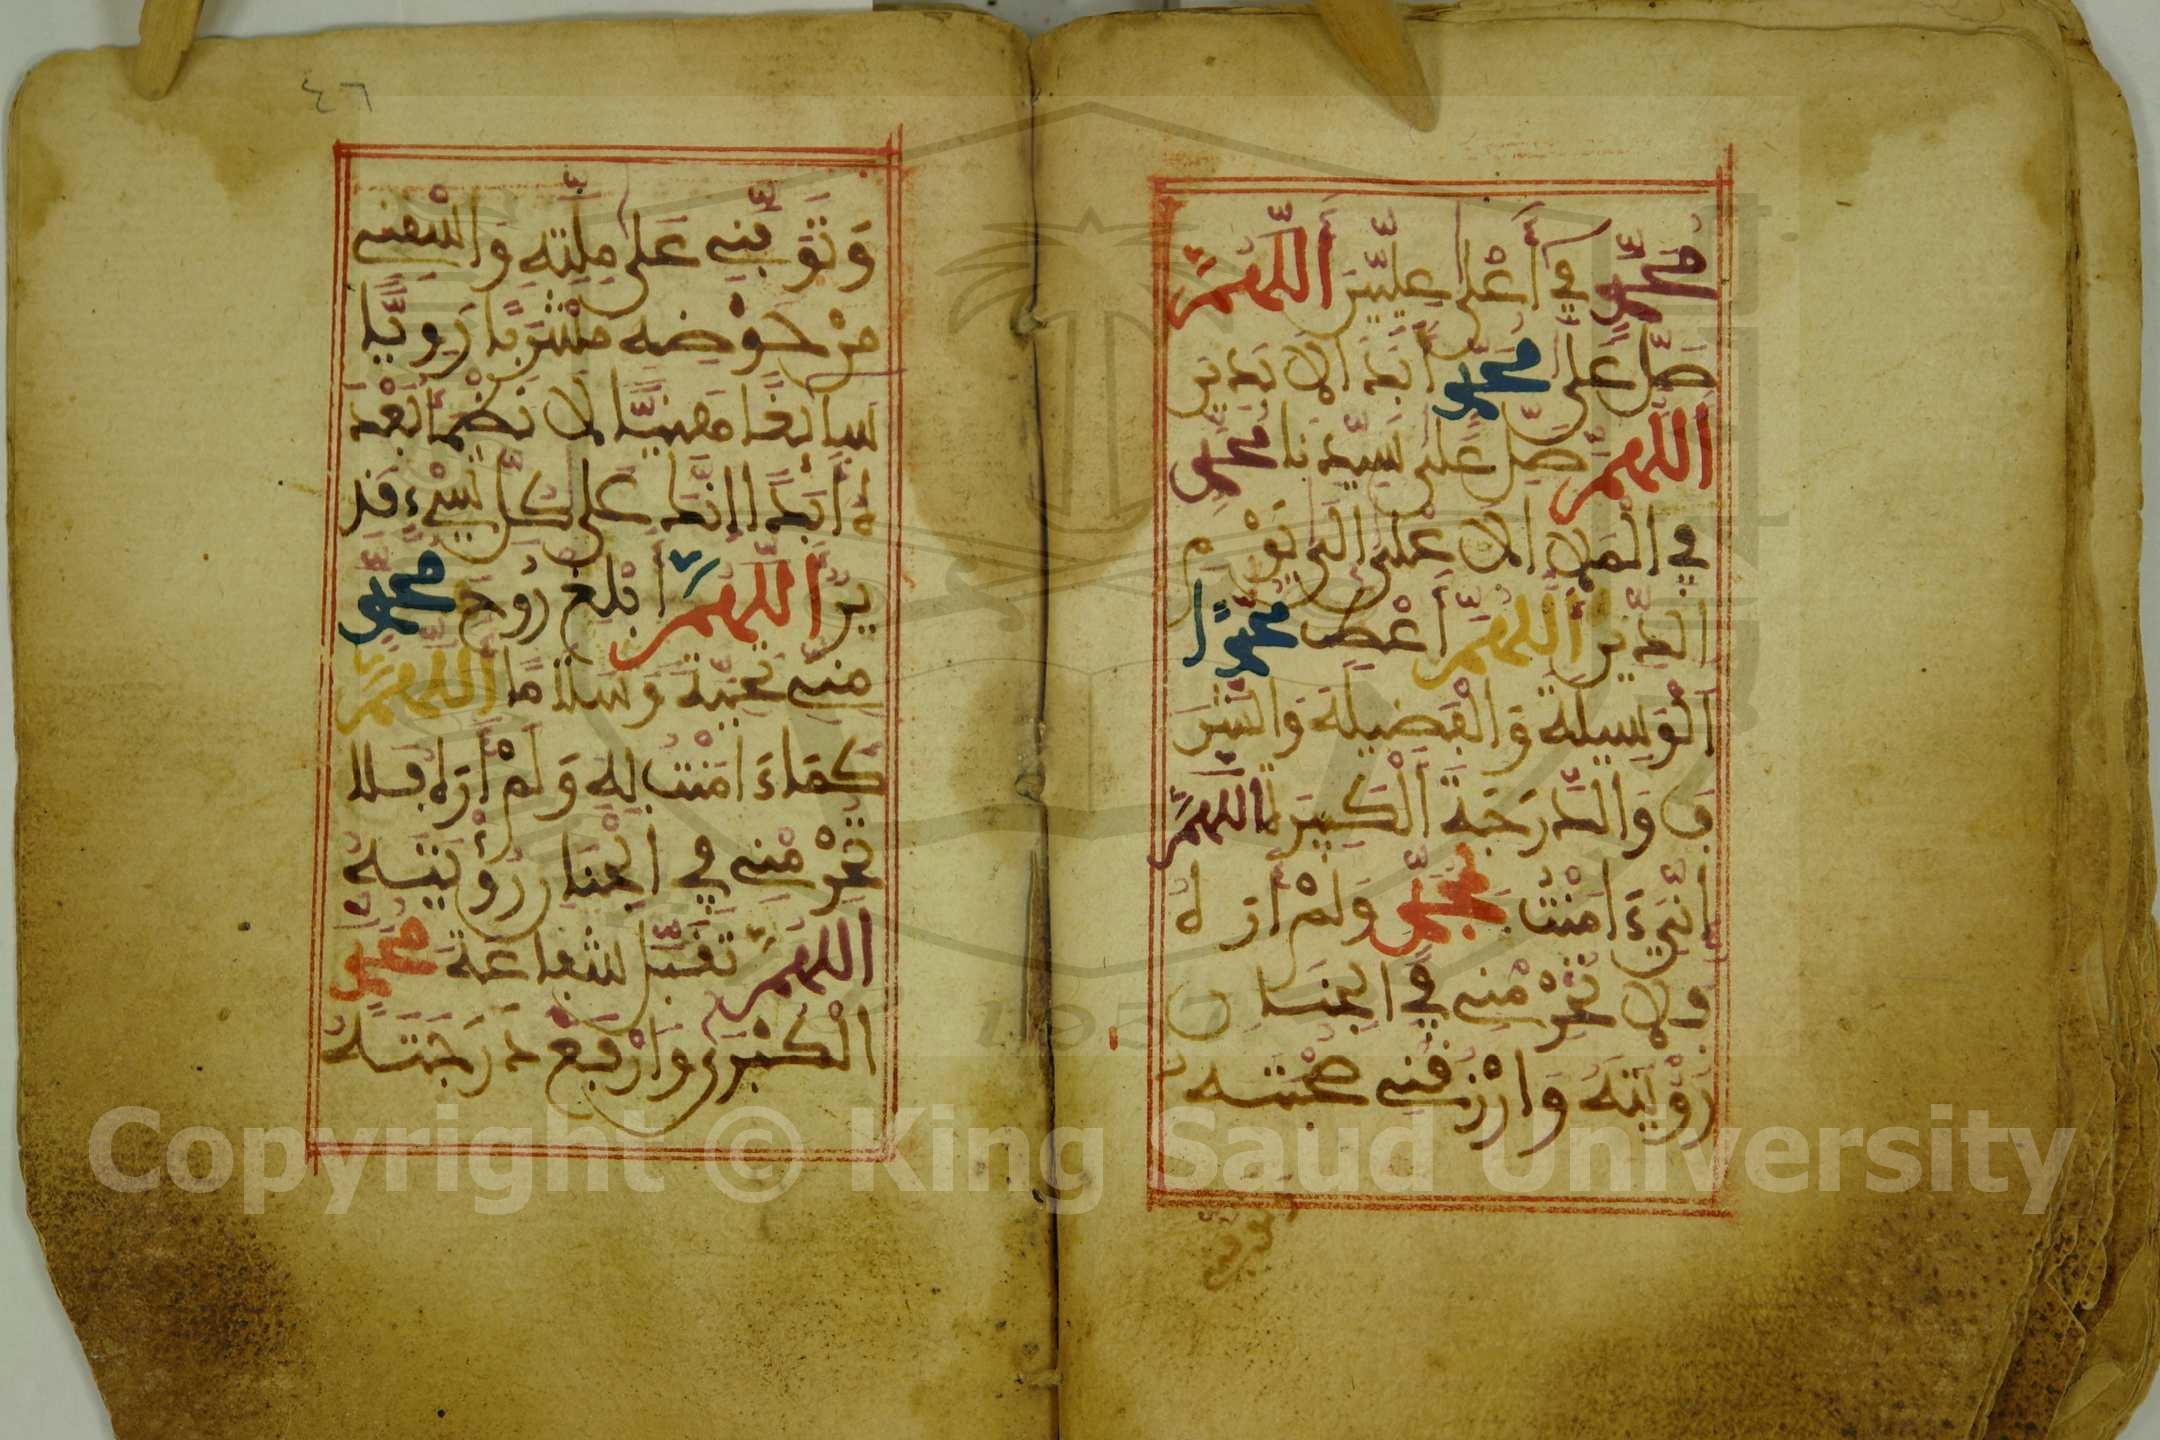 مُحَمَّدٍ فِي أَعْلَى عِلِّيِّينَ اللَّهُمَّ
صَلِّ عَلَى مُحَمَّدٍ أَبَدَ الاَبَدِينَ
اللَّهُمَّ صَلِّ عَلَى سَيِّدِنَا مُحَمَّدٍ
فِي الْمَلَإِ الاَعْلَى إِلَى يَوْمِ
الدِّينِ اللَّهُمَّ أَعْطِ مُحَمَّدًا
الْوَسِيلَةَ وَالْفَضِيلَةَ وَالشَّرَ
فَ وَالدَّرَجَةَ الْكَبِيرَةَ اللَّهُمَّ
إِنِّي ءَامَنْتُ بِمُحَمَّدٍ وَلَمْ أَرَهُ
فَلَا تَحْرِمْنِي فِي الْجِنَانِ
رُؤْيَتَهُ وَارْزُقْنِي صُحْبَتَهُ
وتوفني
وَتَوَفَّنِي عَلَى مِلَّتِهِ وَاسْقِنِي
مِنْ حَوْضِهِ مَشْرَبًا رَوِيًّا
سَائِغًا هَنِيًّا لَا نَظْمَأُ بَعْدَ
هُ أَبَدًا إِنَّكَ عَلَى كُلِّ شَيْءٍ قَدِ
يرٌ اللَّهُمَّ أَبْلِغْ رُوحَ مُحَمَّدٍ
مِنِّي تَحِيَّةً وَسَلَامًا اللَّهُمَّ
كَمَا ءَامَنْتُ بِهِ وَلَمْ أَرَهُ فَلَا
تَحْرِمْنِي فِي الْجِنَانِ رُؤْيَتَهُ
اللَّهُمَّ تَقَبَّلْ شَفَاعَةَ مُحَمَّدٍ
الْكُبْرَى وَارْفَعْ دَرَجَتَهُ
٤٦
Copyright © King Saud University
1957